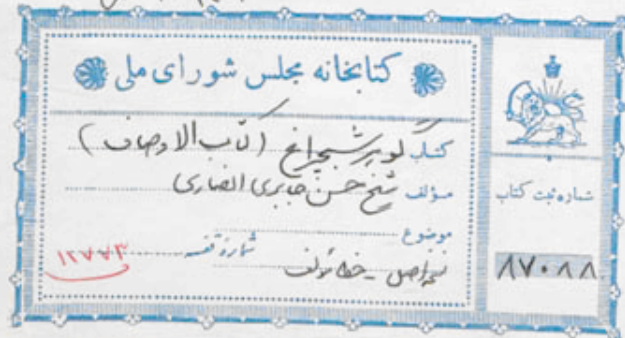 کتابخانه مجلس شورای ملی
کتاب گوهر شبچراغ (کتاب الاوصاف)
مؤلف شیخ حسن جابری انصاری
موضوع
شماره قفسه ۱۲۷۷۳
نسخه اصل - خط مؤلف
شماره ثبت کتاب
۸۷۰۸۸